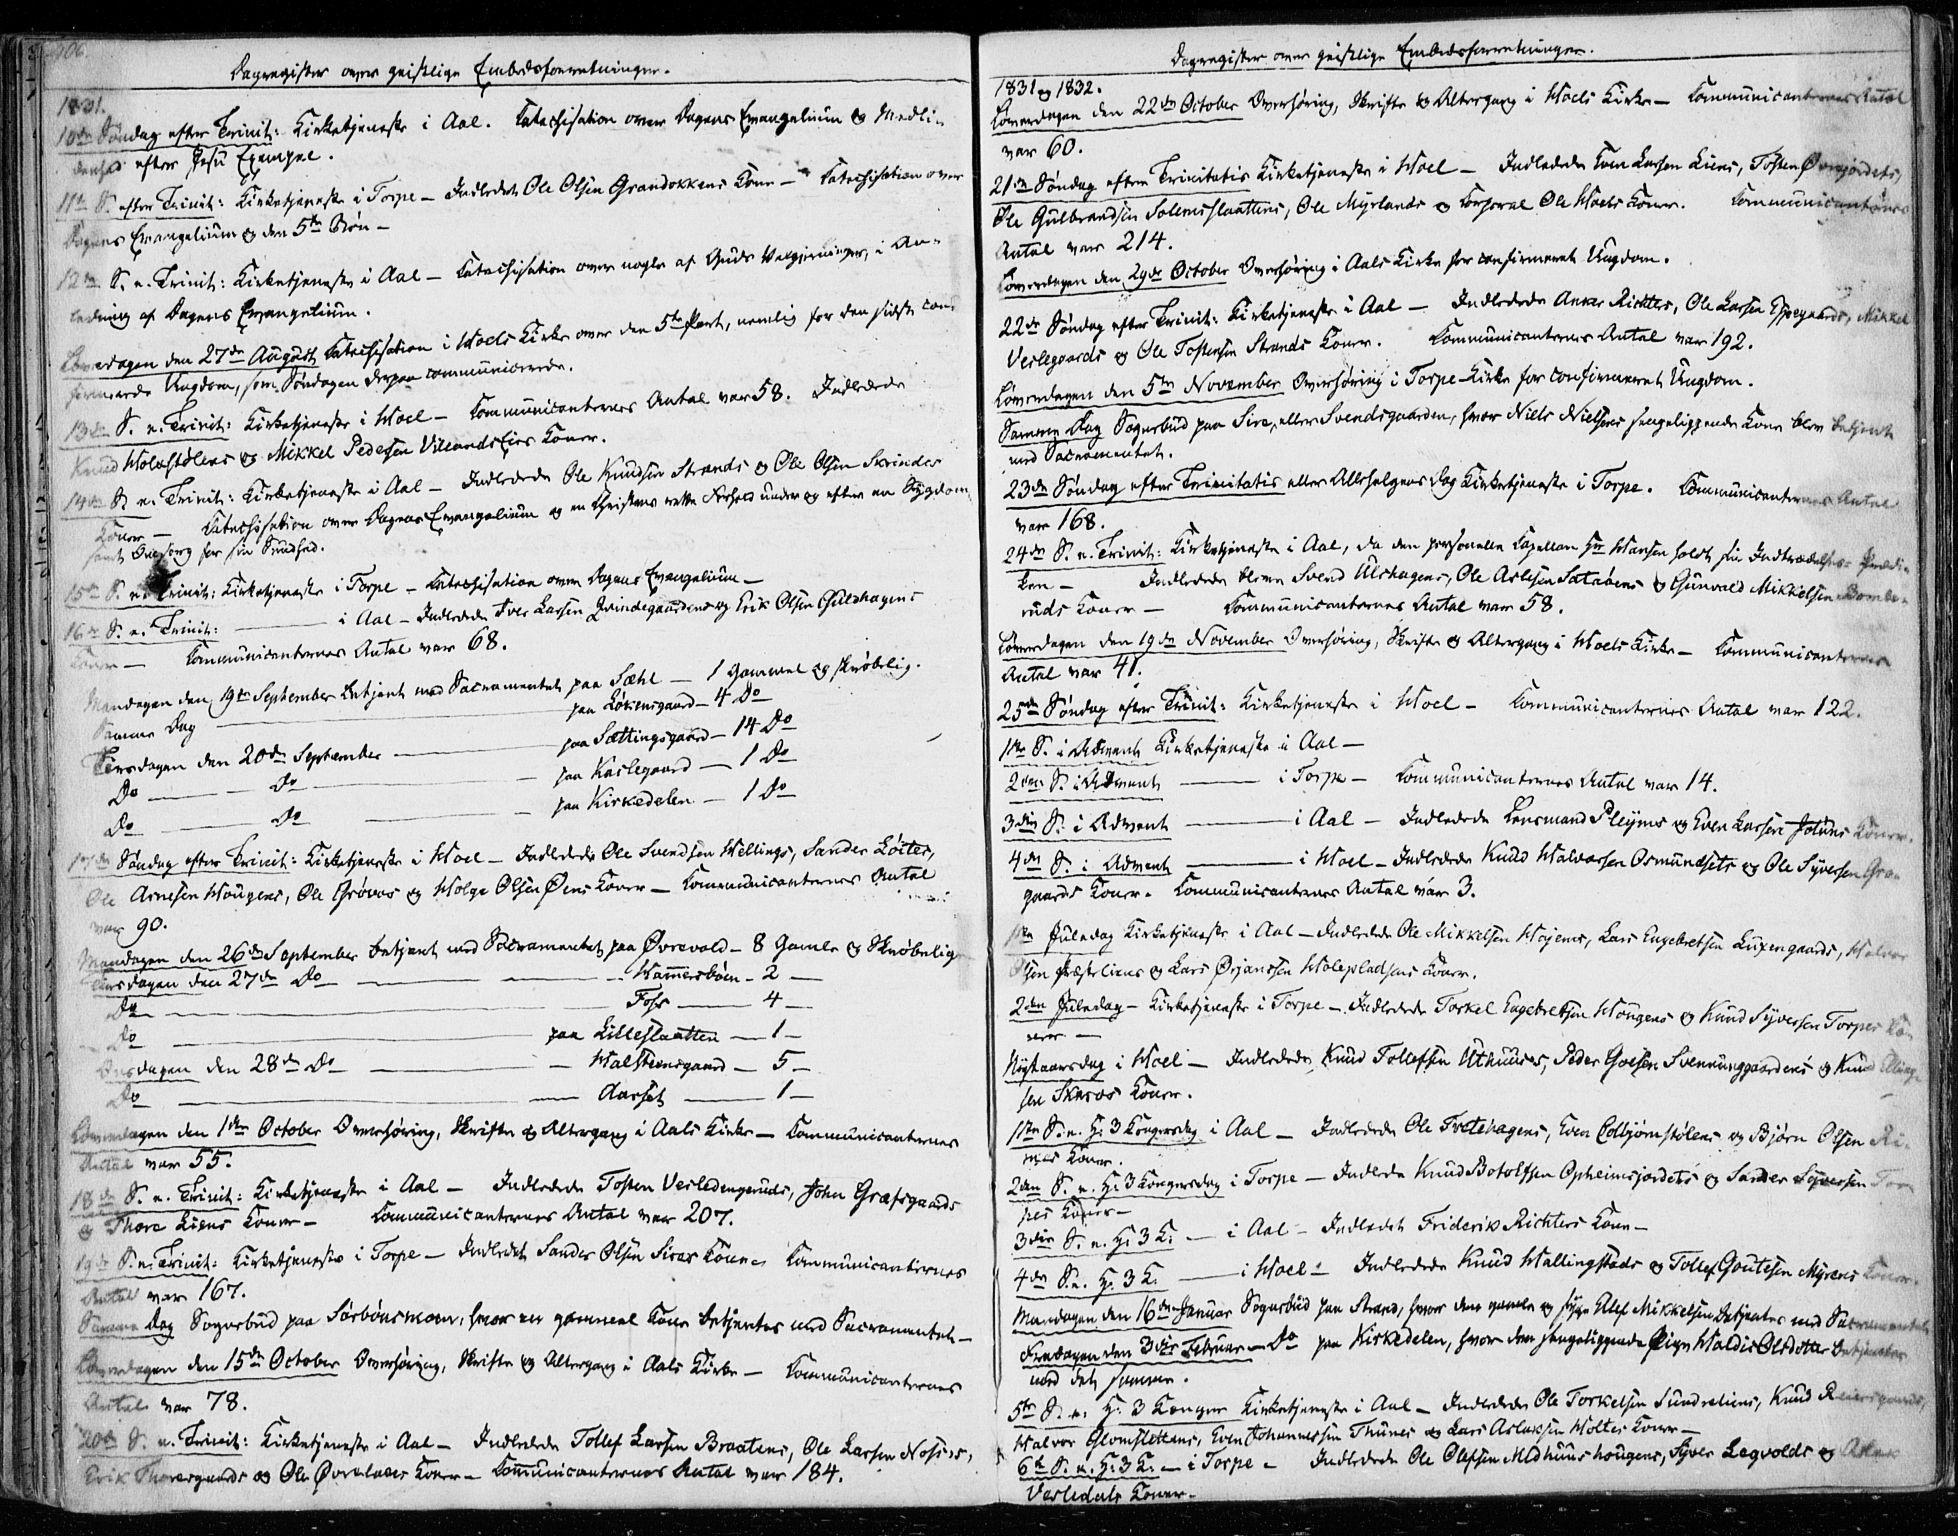 Dagregister over geistlige Embedsforretninger.
1831.
10de Søndag efter Trinit: Kirketjeneste i Aal. Catechisation over Dagens Evangelium og Medli-
denhed efter Jesu Exempel.
11te S. efter Trinit: Kirketjeneste i Torpe – Indledet Ole Olsen Grandokkens Kone – Catechisation over
Dagens Evangelium og den 5te Bøn –
12te S. e. Trinit: Kirketjeneste i Aal – Catechisation over nogle af Guds Velgjerninger, i An-
ledning af Dagens Evangelium.
Løverdagen den 27de August Catechisation i Hoels Kirke over den 5te Part, nemlig for den sidste con-
firmerede Ungdom, som Søndagen derpaa communicerede.
13de S. e. Trinit: Kirketjeneste i Hoel – Communicanternes Antal var 58. Indledede
Knud Holastølens og Mikkel Pedersen Villandseies Koner.
14de S. e. Trinit: Kirketjeneste i Aal – Indledede Ole Knudsen Strands og Ole Olsen Skrindes
Koner – Catechisation over Dagens Evangelium og en Christens rette Forhold under og efter en Sygdom
samt Omsorg for sin Sundhed.
15de S. e. Trinit: Kirketjeneste i Torpe – Catechisation over Dagens Evangelium –
16de S. e. Trinit: — i Aal – Indledede Iver Larsen Qvindegaardens og Erik Olsen Guldhagens
Koner – Communicanternes Antal var 68.
Mandagen den 19de September betjent med Sacramentet paa Sæhl – 1 Gammel og skrøbelig.
Samme Dag — paa Løkensgaard – 4 Do
Tirsdagen den 20de September — paa Sættingsgaard – 14 Do
Do — Do — paa Karlegaard – 1 Do
Do — Do — paa Kirkedelen – 1 Do
17de Søndag efter Trinit: Kirketjeneste i Hoel – Indledede Ole Svendsen Hellings, Sander Løites,
Ole Arnesen Hougens, Ole Grøvos og Holge Olsen Øens Koner – Communicanternes Antal
var 90.
Mandagen den 26de September betjent med Sacramentet paa Øvrevold – 8 Gamle og Skrøbelige
Tirsdagen den 27de Do — Hammersbøen – 2 –
Do — Foss — 4 –
Do — paa Lilleslaatten — 1 –
Onsdagen den 28de Do — Halsteensgaard – 5 –
Do — Aarset — 1 –
Løverdagen den 1ste October Overhøring, Skrifte og Altergang i Aals Kirke – Communicanternes
Antal var 55.
18de S. e. Trinit: Kirketjeneste i Aal – Indledede Tosten Verledengeruds, John Græfsgaards
og Thore Liens Koner – Communicanternes Antal var 207.
19de S. e. Trinit: Kirketjeneste i Torpe – Indledet Sander Olsen Sires Kone – Communicanternes
Antal var 167.
Samme Dag Sognebud paa Sørbønsmoen, hvor en gammel Kone betjentes med Sacramentet –
Løverdagen den 15de October Overhøring, Skrifte og Altergang i Aals Kirke – Communicanternes
Antal var 78.
20de S. e. Trinit: Kirketjeneste i Aal – Indledede Tollef Larsen Braatens, Ole Larsen Noss's,
Erik Thoresgaards og Ole Øvrelaaes Koner – Communicanternes Antal var 184.
Dagregister over geistlige Embedsforretninger.
1831 og 1832.
Løverdagen den 22de October Overhøring, Skrifte og Altergang i Hoels Kirke – Communicanternes Antal
var 60.
21de Søndag efter Trinitatis Kirketjeneste i Hoel – Indledede Tosten Øvrejordets,
Ole Gulbrandsen Solemslaattens, Ole Myrlands og Corporal Ole Hoels Koner. Communicanternes
Antal var 214.
Løverdagen den 29de October Overhøring i Aals Kirke for confirmeret Ungdom.
22de Søndag efter Trinit: Kirketjeneste i Aal – Indledede Anker Richters, Ole Larsen Eppegaards, Mikkel
Verlegaards og Ole Tostensen Strands Koner. Communicanternes Antal var 192.
Løverdagen den 5te November Overhøring i Torpe-Kirke for confirmeret Ungdom.
Samme Dag Sognebud paa Sire, eller Svendsgaarden, hvor Niels Nielsens sengeliggende Kone blev betjent
med Sacramentet.
23de Søndag efter Trinitatis eller Allehelgens Dag Kirketjeneste i Torpe. Communicanternes Antal
var 168.
24de S. e. Trinit: Kirketjeneste i Aal, da den personelle Capellan Hr Hansen holdt sin Indtrædelses-Prædi-
ken – Indledede bleve Svend Ulshagens, Ole Aslesen Sataøens og Gunvald Mikkelsen
ruds Koner – Communicanternes Antal var 58.
Løverdagen den 19de November Overhøring, Skrifte og Altergang i Hoels Kirke – Communicanternes
Antal var 41.
25de Søndag efter Trinit: Kirketjeneste i Hoel – Communicanternes Antal var 122.
1ste S. i Advent Kirketjeneste i Aal –
2den S. i Advent — i Torpe – Communicanternes Antal var 14.
3die S. i Advent — i Aal – Indledede Lensmand Pleyms og Even Larsen Joluns Koner.
4de S. i Advent — i Hoel – Indledede Knud Halvorsen Osmundsets og Ole Syversen Gron-
gaards Koner. Communicanternes Antal var 3.
1ste Juledag Kirketjeneste i Aal – Indledede Ole Mikkelsen Høiens, Lars Engebretsen Luxengaards, Halvor
Olsen Præsteliens og Lars Ørjansen Holepladsens Koner.
2den Juledag – Kirketjeneste i Torpe – Indledede Torkel Engebretsen Hougens og Knud Syversen Torpes Ko-
ner –
Nytaarsdag i Hoel – Indledede Knud Tollefsen Uthuuses, Peder Goesen Svenkunggaardens og Knud Elling-
sen Skaros Koner.
1ste S. e. H: 3 Kongersdag i Aal – Indledede Ole Tretehagens, Even Colbjørnstølens og Bjørn Olsen Ri-
mes Koner.
2den S. e. H: 3 Kongersdag i Torpe – Indledede Knud Botolfsen Opheimsjordets og Sander Syversen Tor-
pes Koner –
3die S. e. H: 3 K: — i Aal – Indledet Friderik Richters Kone –
4de S. e. H: 3 K. — i Hoel – Indledede Knud Hallingstads og Tollef Goutesen Myrens Koner.
Mandagen den 16de Januar Sognebud paa Strand, hvor den gamle og syge Elef Mikkelsen betjentes med Sacramentet
Fredagen den 3die Februar – Do paa Kirkedelen, hvor den sengeliggende Pige Haldis Olsdatter betjentes
med det samme.
5te S. e. H: 3 Konger Kirketjeneste i Aal – Indledede Ole Torkelsen Sundreliens, Knud Reiersgaards,
Halvor Glomslettens, Even Johannessen Thunes og Lars Aslaksen Holtes Koner –
6te S. e. H: 3 K. — i Torpe – Indledede Ole Olefsen Medhuushougens, Syver Legvolds og Aslak
Verledals Koner –